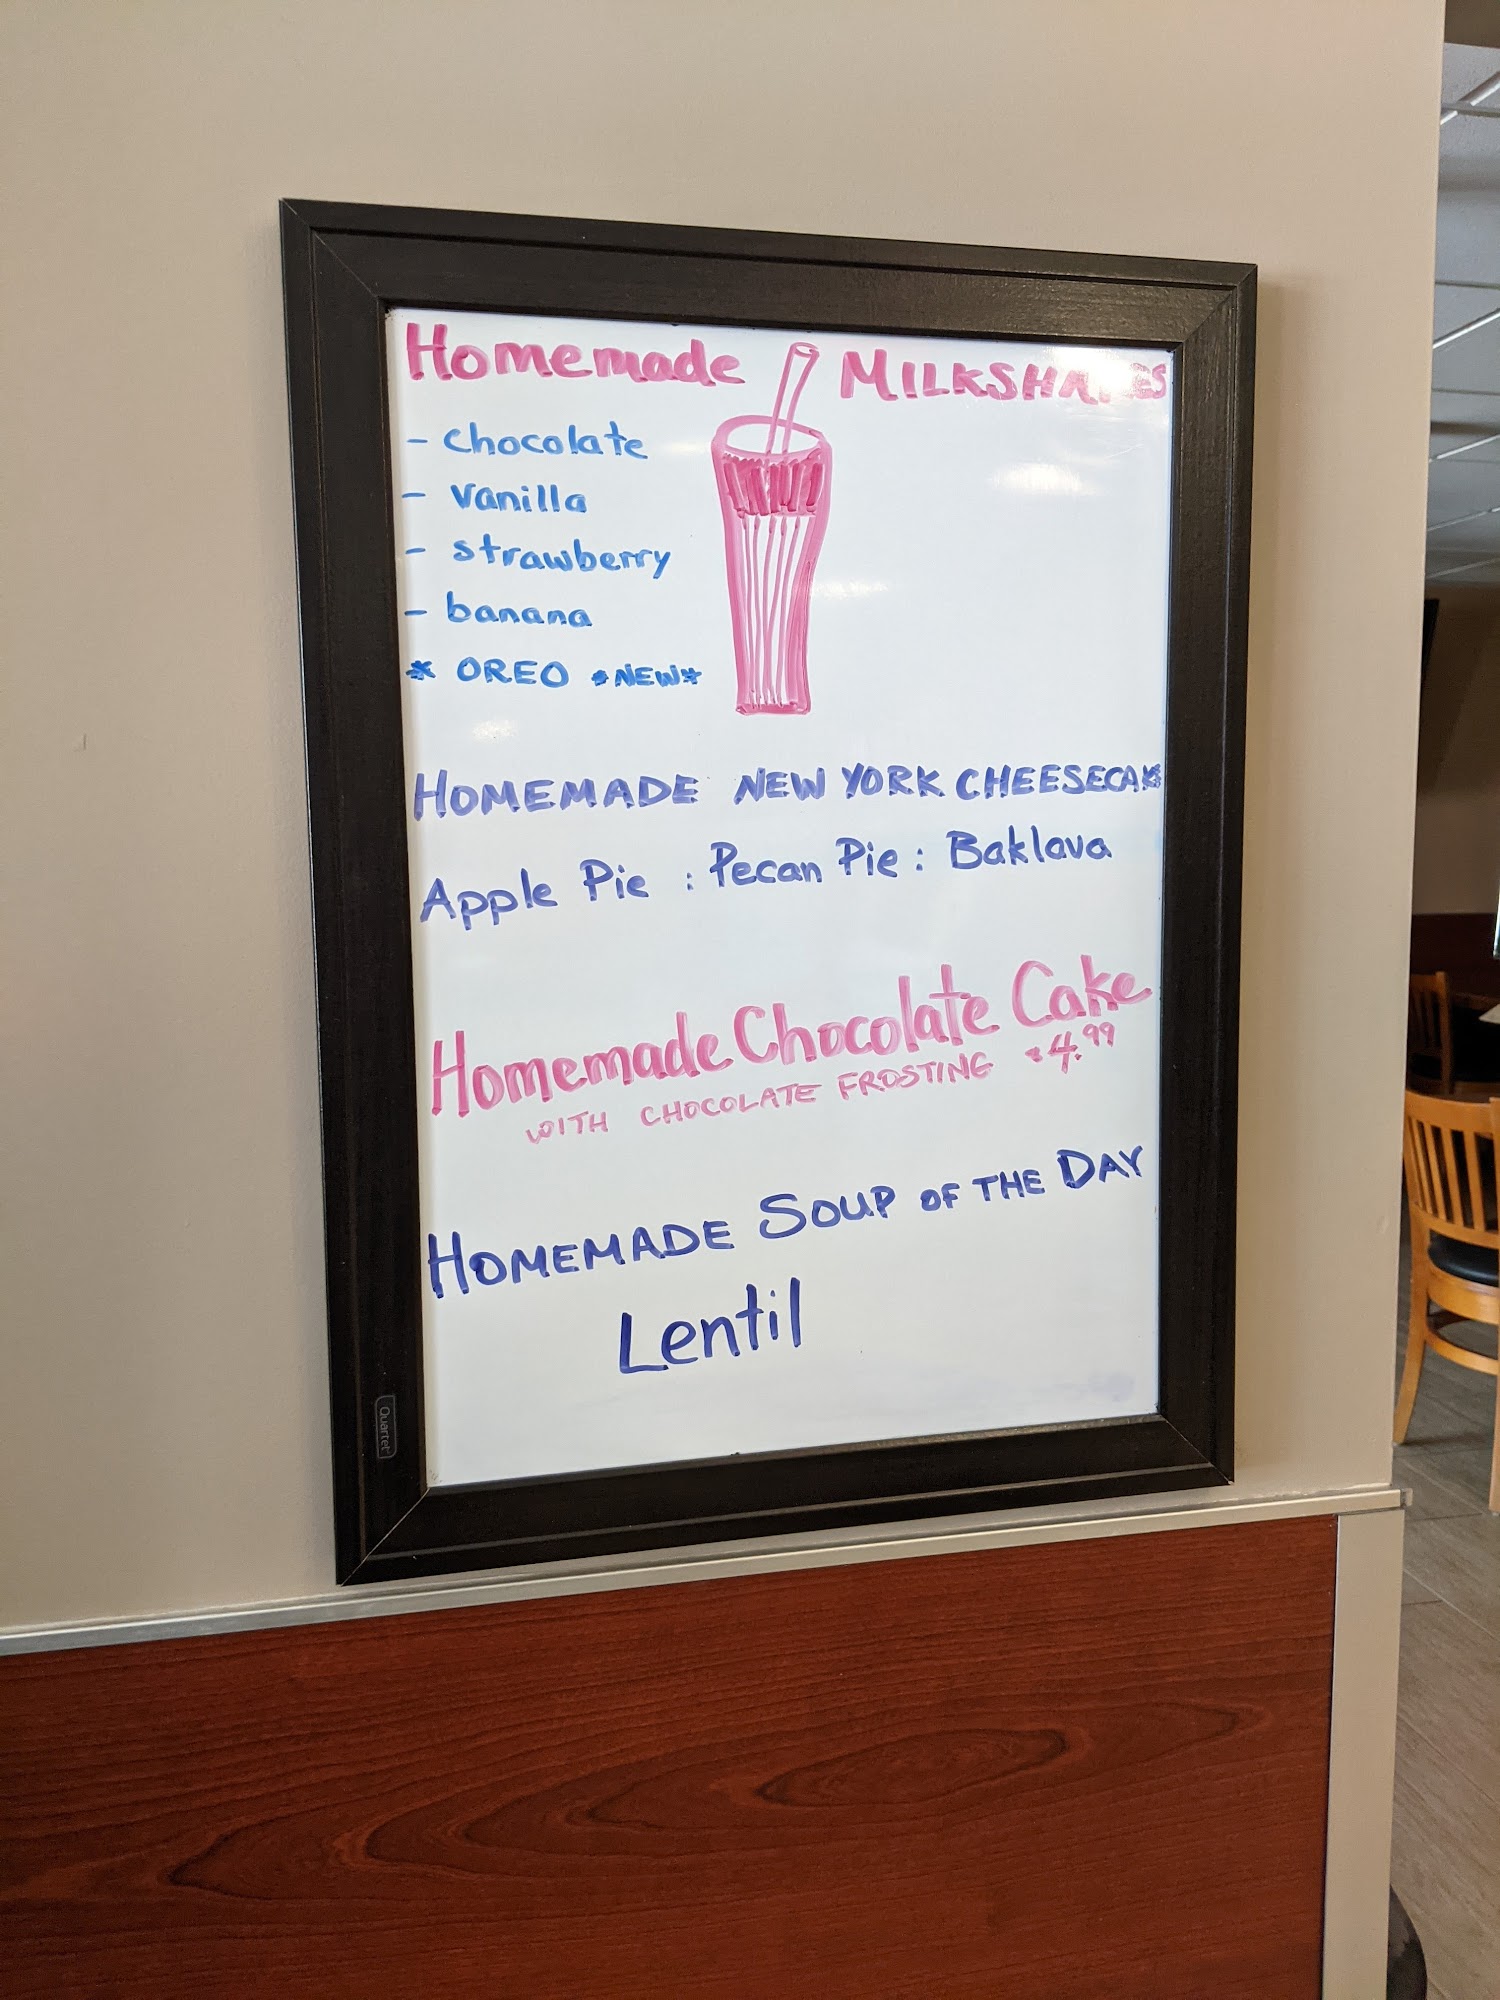 Homemade MILKSHAKES
- chocolate
- vanilla
- strawberry
- banana
* OREO *NEW*
HOMEMADE NEW YORK CHEESECAK
Apple Pie : Pecan Pie : Baklava
Homemade Chocolate Cake
WITH CHOCOLATE FROSTING $4.99
HOMEMADE SOUP OF THE DAY
Lentil
Quartet